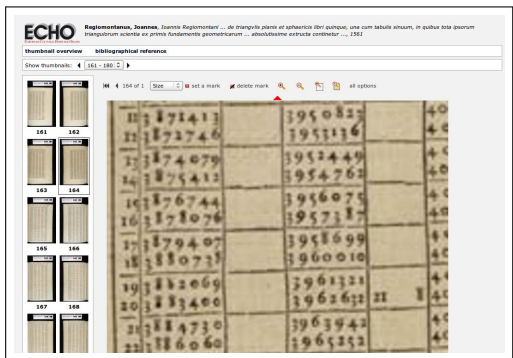 ECHO
Regiomontanus, Joannes, Ioannis Regiomontani ... de triangvlis planis et sphaericis libri quinque, una cum tabulis sinuum, in quibus tota ipsorum
triangulorum scientia ex primis fundamentis geometricarum ... absolutissime extructa continetur ..., 1561
thumbnail overview bibliographical reference
Show thumbnails: 161 - 180
164 of 1 Size set a mark delete mark all options
161 162
163 164
165 166
167 168
11 3871413 3950823 40
12 3872746
13 3874079
14 3875412 3954762
15 3876744 3956075
16 3878076 3957387
17 3879407 3958699
18 3880738 3960010
19 3882069 3961321
20 3883400 3962632 21 8
21 3884730 3963942
22 3886060 3965252